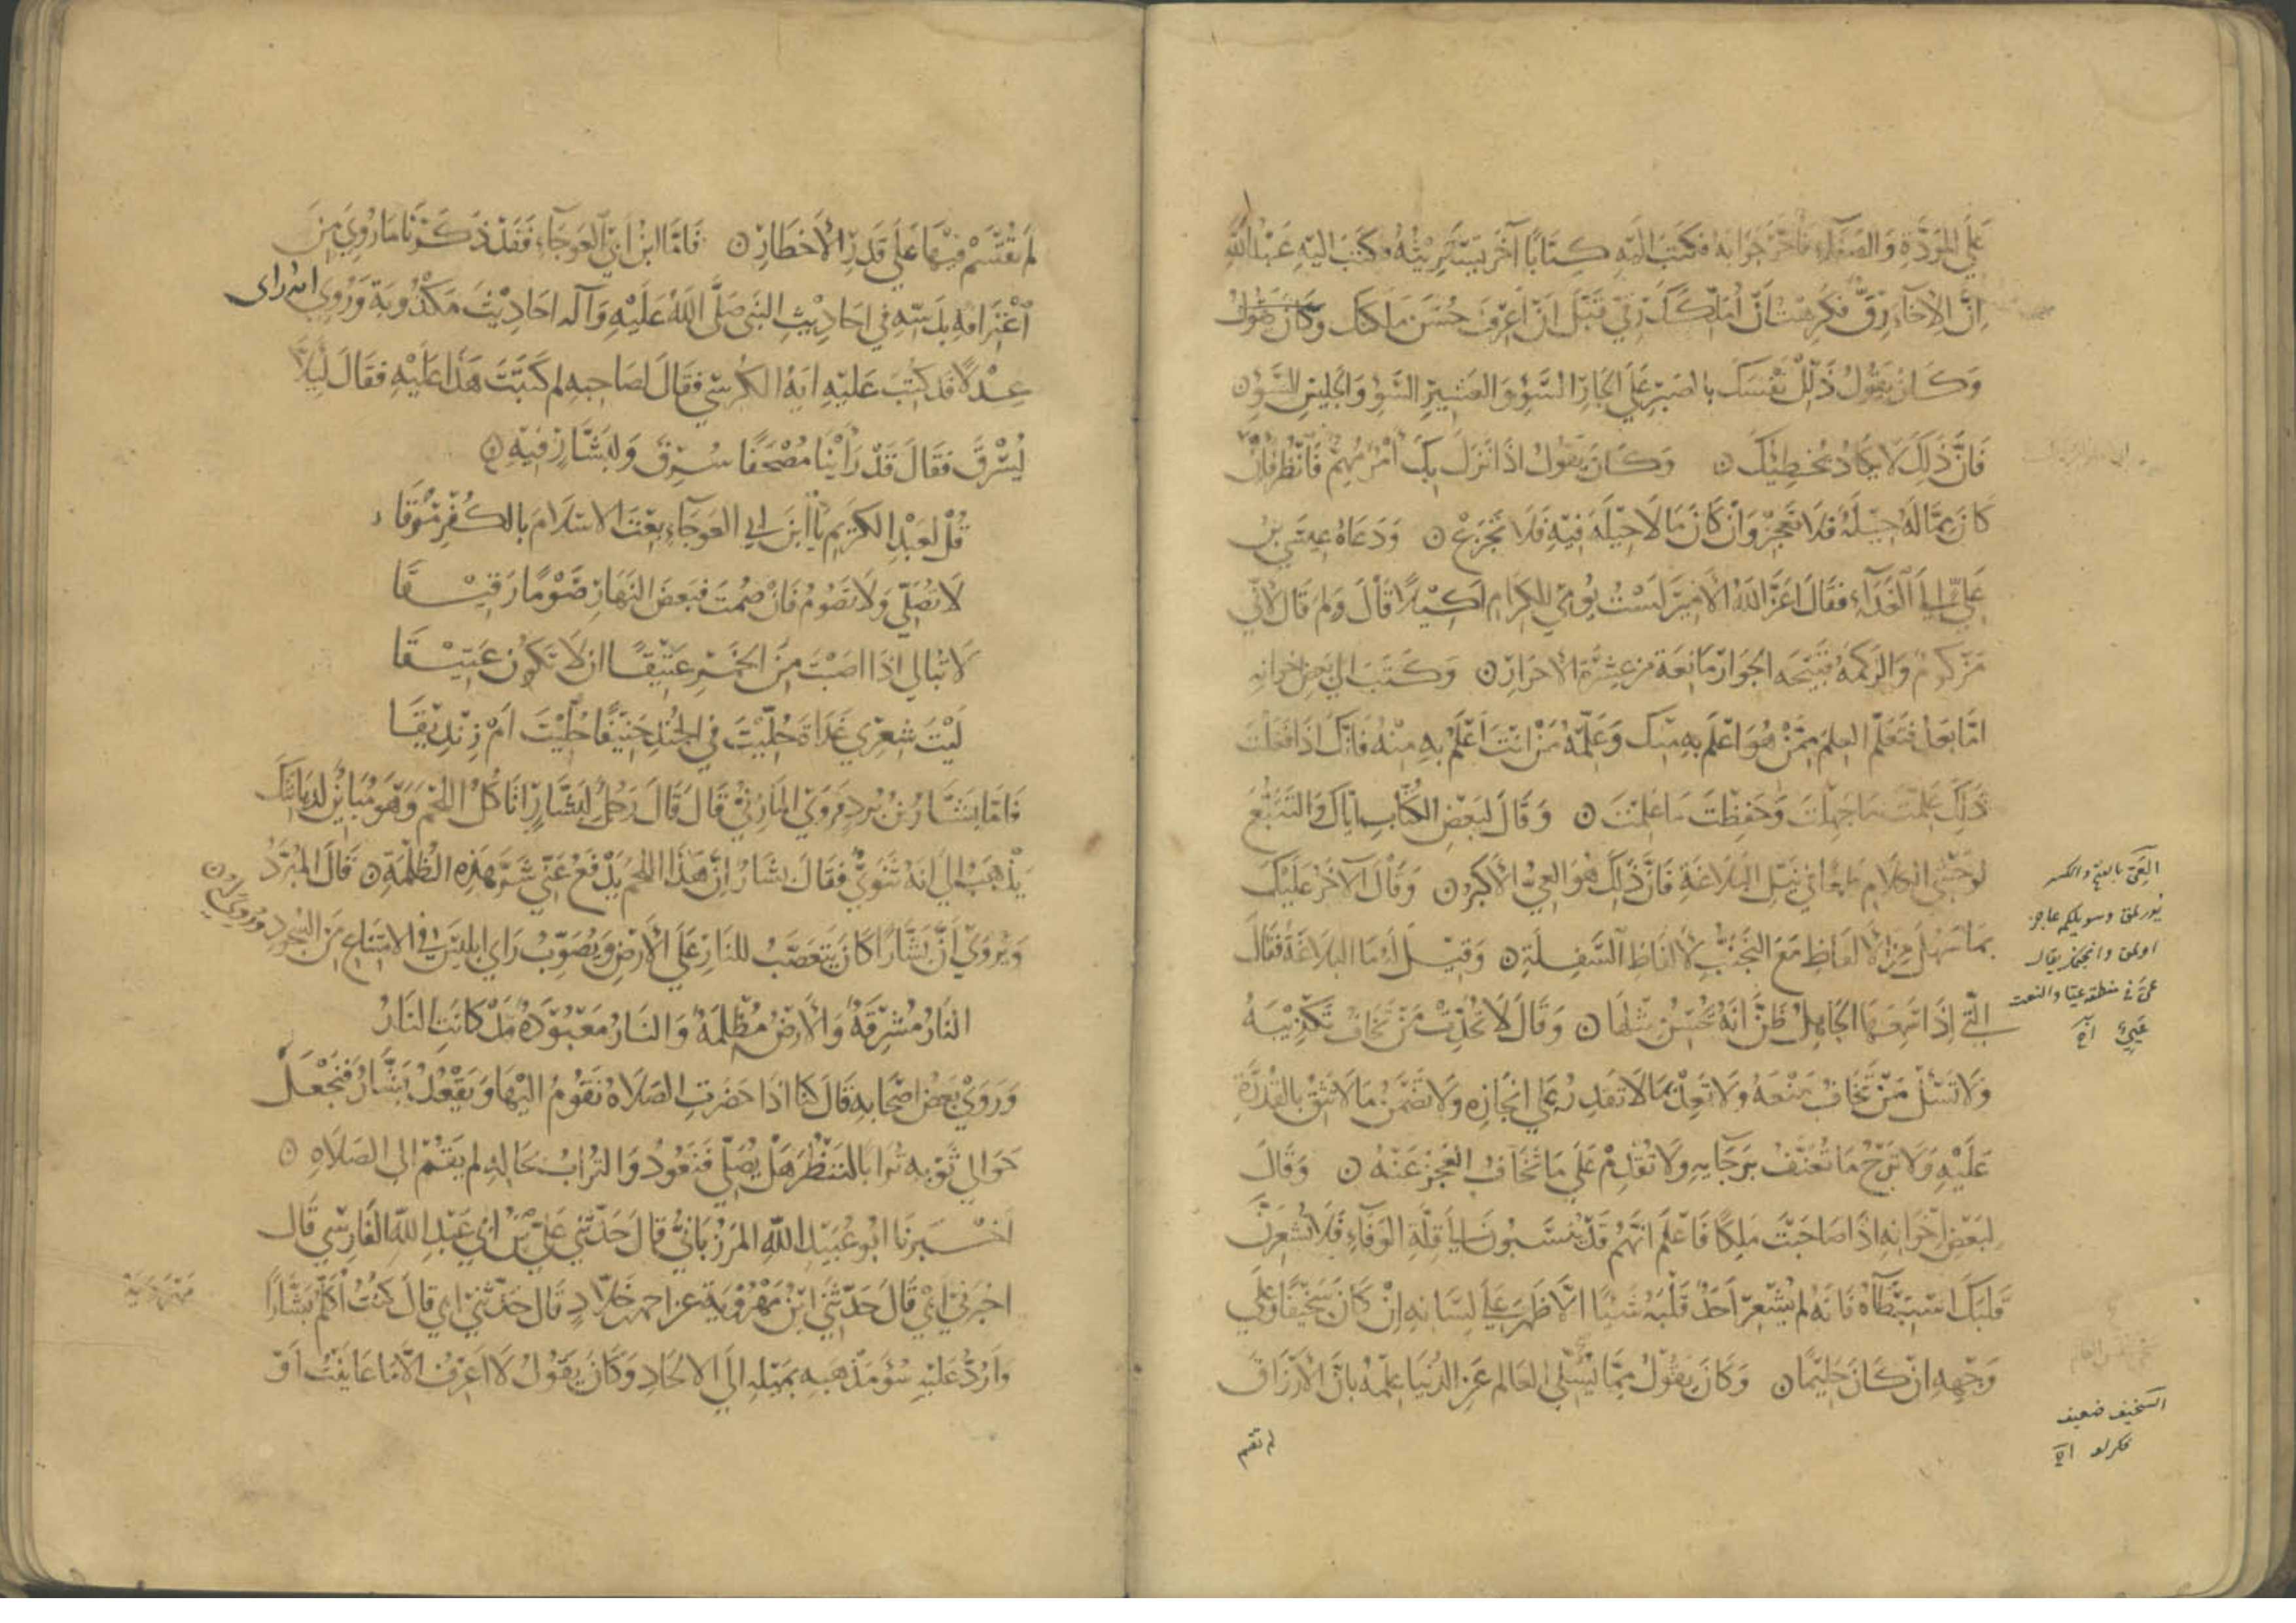 علَى المَوَدَّةِ وَالصَّفَاءِ فَأَخَّرَ جَوَابَهُ فكَتَبَ الَيْهِ كِتَابًا آخَرَ يَسْتَرِيثُهُ وَكَتَبَ الَيْهِ عَبْدُ اللَّهِ
انَّ الإخَآءَ رِقٌّ فَكَرِهْتُ أَنْ أُمَلِّكَكَ رِقِّي قَبْلَ انْ اَعْرِفَ حُسْنَ مَلَكتك وكَانَ يَقُولُ
وَكَانَ يَقُولُ ذَلِّلْ نَفْسَكَ بالصَبْرِ عَلَى الجَارِ السَّوْءِ وَالعَشِيرِ السَّوْءِ وَالجَلِيسِ السَّوْءِ
فَانَّ ذَلِكَ لَا يَكادُ يُخطِئُكَ وَكَانَ يَقُولُ اذَا نَزَلَ بِكَ أمْرٌ مُهِمٌّ فَانْظُرْ فَإنْ
كَانَ مِمَّا لَهُ حِيْلَةٌ فَلَا تَعجِزْ وَانْ كَانَ مَالَا حِيْلَةَ فِيْهِ فَلَا تَجْزَعْ وَدَعَاهُ عِيْسَى بْنُ
عَلىٍّ إلَى الغَدَآءِ فقَالَ اعَزَّ اللهُ الأَمِيرَ لَسْتُ يَوْمِي لِلكِرَامِ اَكِيْلًا قَالَ وَلِمَ قَالَ لأَنِّي
مَزْكُومٌ وَالزُّكْمَةُ قَبِيْحَه الجِوَارِ مَانِعَة مِن عِشْرَةِ الاحْرَارِ وَكَتَبَ الى بَعضِ اخوانِهِ
امَّا بَعدُ فتَعَلَّمِ العِلمَ مِمَّنْ هُوَ اعْلَمُ بِهِ مِنْكَ وَعَلِّمْهُ مَنْ انْتَ اَعْلَمُ بِهِ مِنْهُ فَانَّكَ اذَا فَعَلْتَ
ذَلِكَ عَلِمْتَ مَا جَهِلْتَ وَحَفِظْتَ مَا عَلِمْتَ وَقَالَ لبَعْضِ الكُتَّابِ ايَّاكَ وَالتَتَبُّعَ
لوَحْشِيِّ الكلَامِ طَمَعًا في نَيْلِ البَلَاغَةِ فَانَّ ذَلِكَ هُوَ العِيُّ الأَكبَرُ وَقَالَ لآخَرَ عَلَيْكَ
بمَا سَهُلَ مِنَ الأَلفَاظِ مَعَ التَجَنُّبِ لأَلفَاظِ السَّفِلَةِ وَقِيْلَ لَهُ مَا البَلاغَةُ فقَالَ
الَّتي اِذَا سَمِعَهَا الجَاهِلُ ظَنَّ انَّهُ يُحْسِنُ مِثْلَهَا وَقَالَ لَا تُحَدِّثْ مَنْ تَخَافُ تَكْذِيْبَهُ
وَلَا تَسْئَلْ مَنْ تَخَافُ مَنْعَهُ وَلَا تَعِدْ بمَا لَا تَقدِرُ عَلى انْجَازِه وَلَا تَضْمَنْ مَا لَا تَثِقُ بالقُدْرَةِ
عَلَيْهِ وَلَا تَرْجُ مَا تُعَنَّفُ بِرَجَايهِ وَلَا تُقْدِمْ عَلَى مَا تَخَافُ العَجْزَ عَنْهُ وَقَالَ
لبَعْضِ اخْوَانِهِ اذَا صَاحَبْتَ مَلِكًا فَاعْلَمْ انَّهُم قَدْ يُنْسَبُونَ الى قِلَّةِ الوَفَاءِ فَلَا تُشْعِرَنَّ
قَلبَكَ اسْتِبْطَآءَهُ فَانَهُ لَمْ يُشْعِرْ احَدٌ قَلْبَهُ شَيْئًا الَّا ظَهَرَ عَلَى لِسَانِهِ اِنْ كَانَ سَخِيْفًا وَعَلى
وَجْهِهِ انْ كَانَ حَلِيْمًا وَكَانَ يَقُولُ مِمَّا يُسَلِّي العَالم عَنِ الدُّنيَا عِلْمُهُ بانَّ الأَرْزَاقَ
العِيّ بالفتح والكسر
السخيف ضعيف
فكرلو اح
لم تقسم
لَمْ تُقْسَمْ فِيْهَا عَلَى قَدَرِ الأَخطَارِ فَامَّا ابنُ ابي العَوجَآءِ فَقَدْ ذَكَرْنَا مَا رُوِيَ مِنَ
اعْتِرَافِهِ بدَسِّهِ في احَادِيْثِ النَّبِى صَلَّى اللهُ عَلَيْهِ وَآلهِ احَادِيْثَ مَكْذُوبَة وَرُوِي انه راى
عِدْلاً قد كُتِبَ عَلَيْهِ ايَةُ الكُرسِي فقَالَ لصَاحِبهِ لِم كَتَبْتَ هَذَا عَليْهِ فقَالَ لِئَلَّا
يُسْرَقَ فَقَالَ قَدْ رَأيْنَا مُصْحَفًا سُرِقَ وَلِبَشَّارٍ فِيْهِ
قُلْ لعَبْدِ الكرِيمِ يَا ابنَ ابي العَوجَآءِ بِعْتَ الاسْلَامَ بالكُفْرِ مُوْقَا
لَا تُصَلِّي وَلَا تَصُومُ فَانْ صُمْتَ فَبَعْضَ النَهَارِ صَوْمًا رَقِيْقَا
لَا تُبَالي اذَا اصَبْتَ مِنَ الخَمْرِ عَتِيْقًا ان لَا تكُونَ عَتِيْقَا
لَيْتَ شِعْرِي غَدَاةَ حُلِّيْتَ في الجُندِ حَنِيْفًا حُلِّيْتَ اَمْ زِنْدِيْقَا
فَامَّا بَشَّارُ بْنُ بُرْدٍ فروَى المَازِنيُّ قَالَ قَالَ رَجُلٌ لِبَشَّارٍ اتَأكُلُ اللحْمَ وَهُوَ مُبَايِنٌ لدِيَانَتِكَ
يَذْهَبُ الى انَّهُ ثَنَوِيٌّ فقَالَ بشَّارُ انَّ هَذَا اللحمَ يَدْفَعُ عَنّي شَرَّ هَذِهِ الظُلْمَةِ قَالَ المُبَرّدُ
وَيُرْوَي أنَّ بَشَّارًا كَانَ يَتَعَصَّبُ للنَارِ عَلَى الأَرضِ وَيُصَوِّبُ رَاي ابليسَ في الامْتِنَاعِ مِنَ السُّجُودِ ورُوِيَ لهُ
النَارُ مُشْرِقَةٌ وَالأَرْضُ مُظْلِمَةٌ وَالنَارُ مَعْبُوْدَةٌ مُذْ كَانَتِ النَارُ
وَرَوَيْ بَعْضُ اصْحَابهِ قَالَ كنَّا اذَا حَضَرتِ الصَلَاة نَقُومُ اليْهَا وَيَقْعُدُ بَشَّارٌ فنَجْعَلُ
حَوَالي ثَوْبهِ تُرَابًا لِنَنْظُرَ هَلْ يُصَلّي فَنَعُودُ وَالتُرَابُ بحَالِهِ لم يَقُمْ الى الصَلَاةِ
اخْبَرنَا ابُو عُبَيْدِ اللهِ المَرْزُبَانيُّ قَالَ حَدَّثَنِي عَليُّ بْنُ ابي عَبْدِ اللهِ الفَارِسي قَالَ
اخبَرَني ابي قَالَ حَدَّثَنِي ابْنُ مَهْرُوْيَةَ عن احمد خَلَّادٍ قَالَ حَدَّثَنِي ابي قَالَ كُنْتُ اُكَلِّمُ بَشَّارًا
وَارُدُّ عَلَيْهِ سُوْءَ مَذْهَبهِ بمَيْلِهِ اِلَى الالحَادِ وَكَانَ يَقُولُ لَا اعْرِفُ الَّا مَا عَايَنْتُ اَوْ